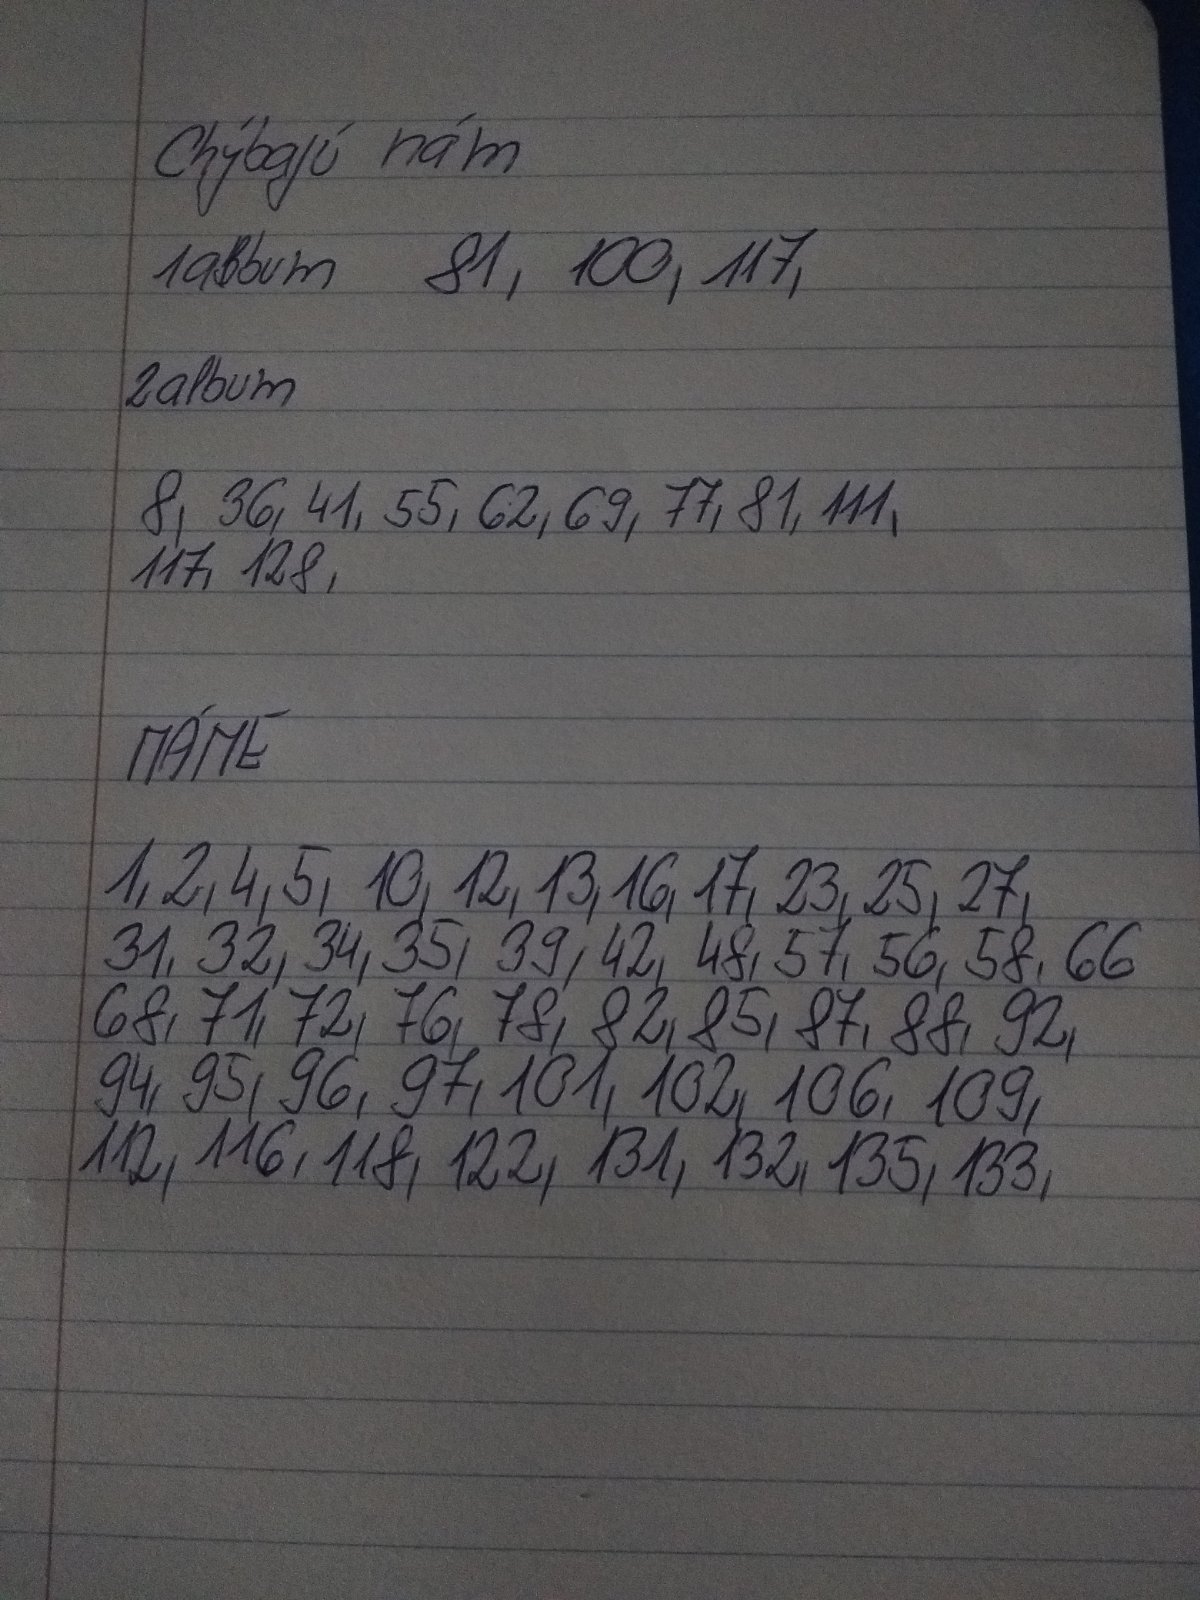 Chýbajú nám
1album 81, 100, 117,
2album
8, 36, 41, 55, 62, 69, 77, 81, 111,
117, 128,
MÁME
1, 2, 4, 5, 10, 12, 13, 16, 17, 23, 25, 27,
31, 32, 34, 35, 39, 42, 48, 57, 56, 58, 66
68, 71, 72, 76, 78, 82, 85, 87, 88, 92,
94, 95, 96, 97, 101, 102, 106, 109,
112, 116, 118, 122, 131, 132, 135, 133,